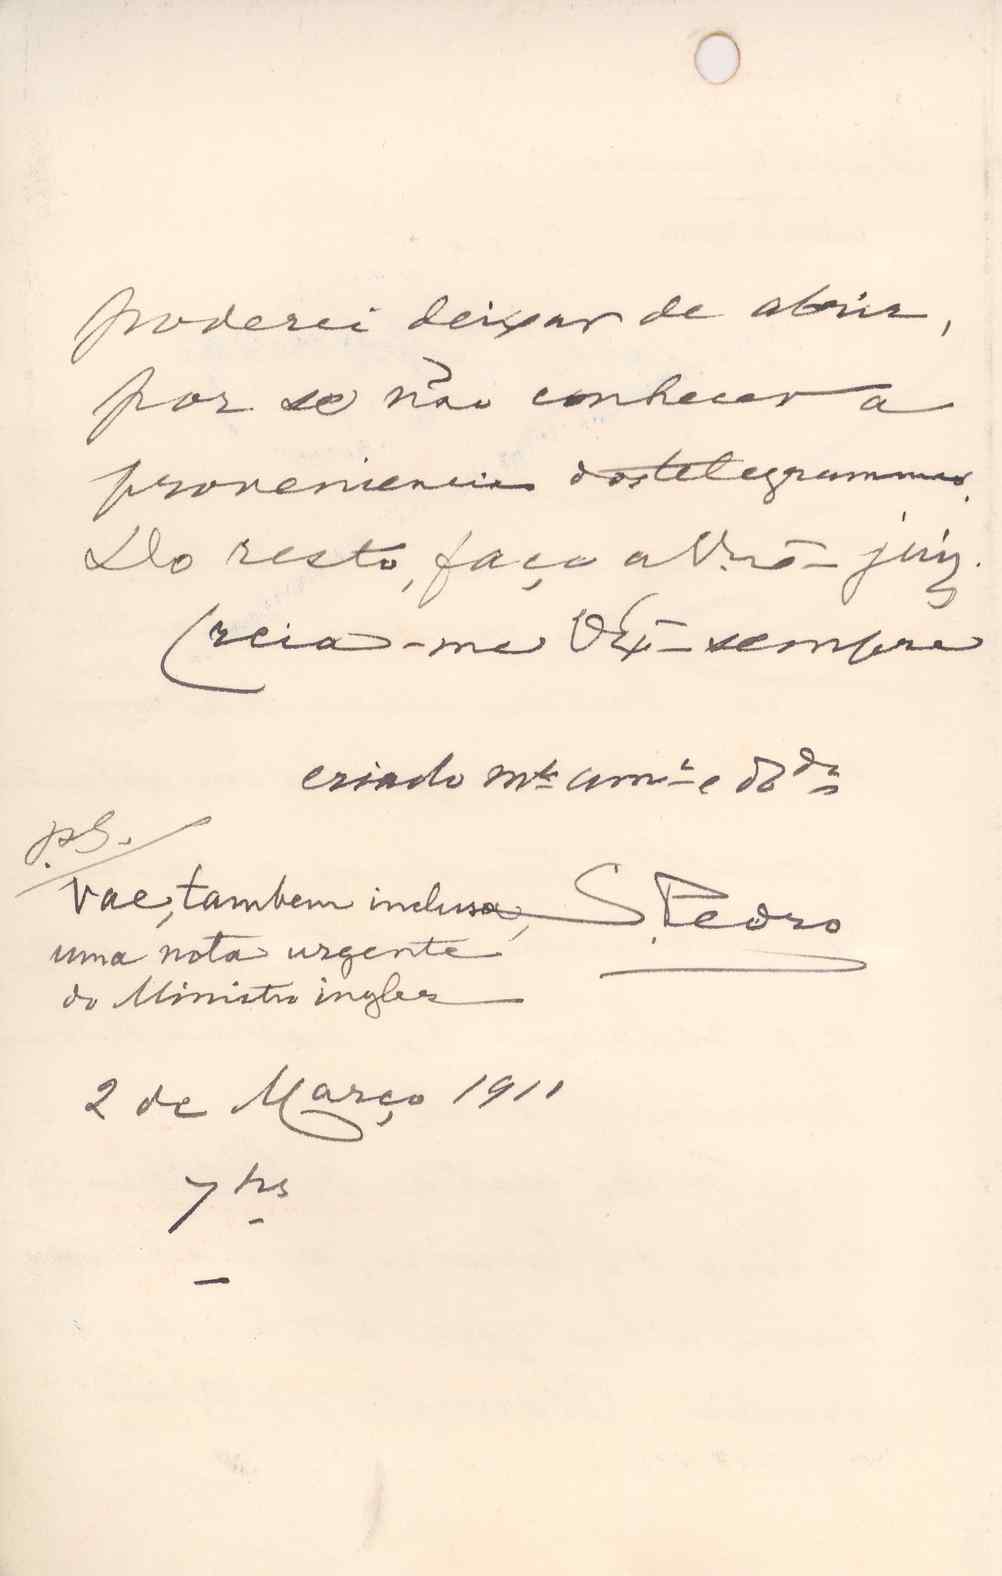 poderei deixar de abrir,
por se não conhecer a
proveniencia dos telegrammas.
Do resto, faço a V. Exª juiz.
Creia-me V. Exª sempre
criado mtº amº e
p.S.
Vae, tambem inclusa, S. Pedro
uma nota urgente
do Ministro inglez
2 de Março 1911
7 hs